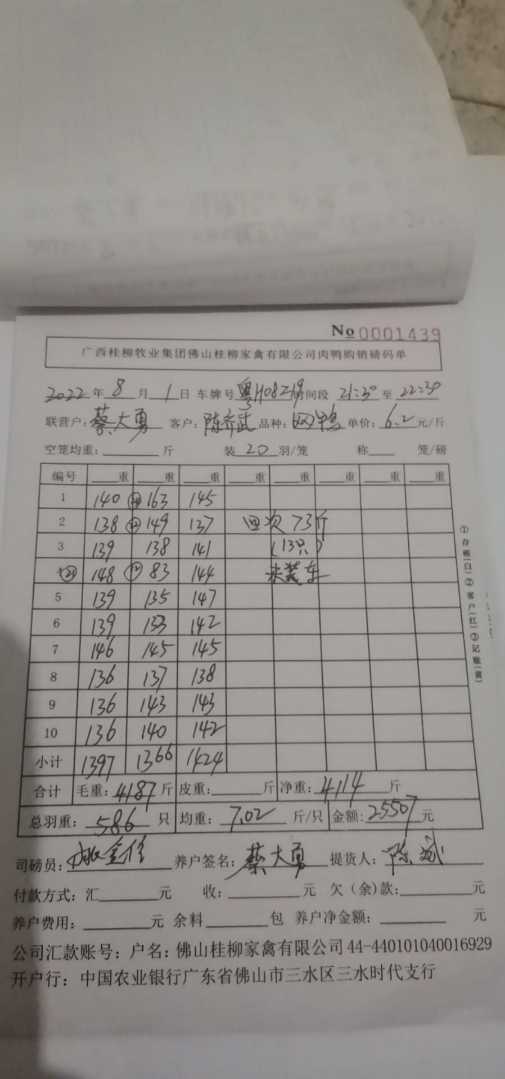 No 0001439
广西桂柳牧业集团佛山桂柳家禽有限公司肉鸭购销磅码单
2022年8月1日 车牌号 粤H08Z19 时间段 21:30至22:30
联营户：蔡大勇 客户：陈齐武 品种： 单价：6.2元/斤
空笼均重： 斤 装20羽/笼 称 笼/磅
编号 重 重 重 重 重 重 重 重
1 140 163 145
2 138 149 137 回次73斤
3 139 138 141 (13只)
148 83 144 未装车
5 139 135 147
6 139 133 142
7 146 145 145
8 136 137 138
9 136 143 143
10 136 140 142
小计 1397 1366 1424
合计 毛重：4187斤 皮重： 斤 净重：4114斤
总羽重：586只 均重：7.02斤/只 金额：25507元
司磅员： 养户签名：蔡大勇 提货人：
付款方式：汇 元 收： 元 欠（余）款： 元
养户费用： 元 余料 包 养户净金额： 元
公司汇款账号：户名：佛山桂柳家禽有限公司44-440101040016929
开户行：中国农业银行广东省佛山市三水区三水时代支行
①存根(白)②客户(红)③记账(黄)